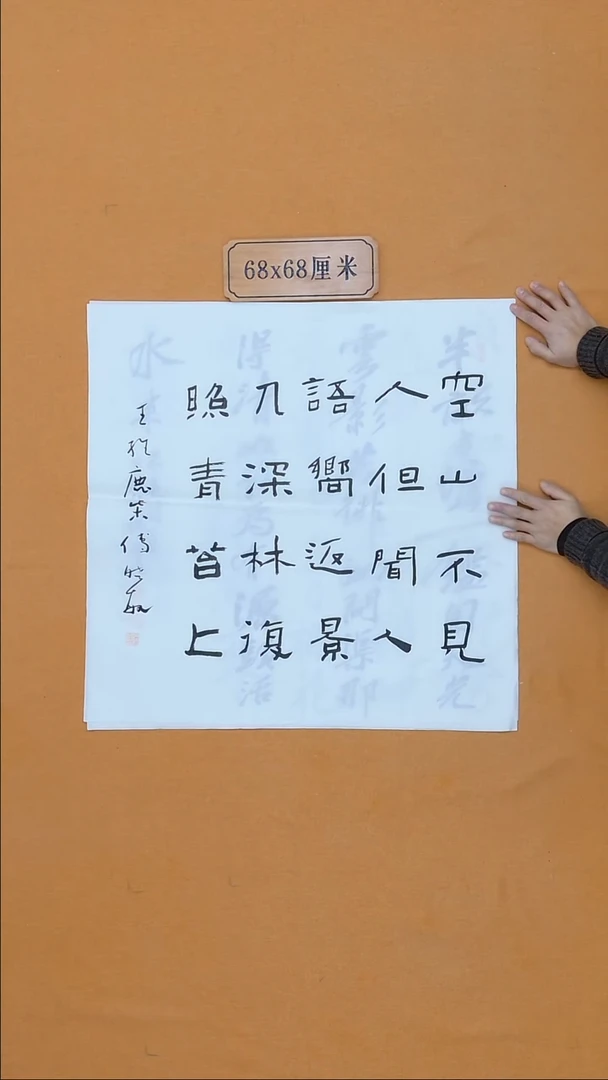 68x68厘米
空山不見
人但聞人
語嚮返景
入深林復
照青苔上
王維鹿柴傅